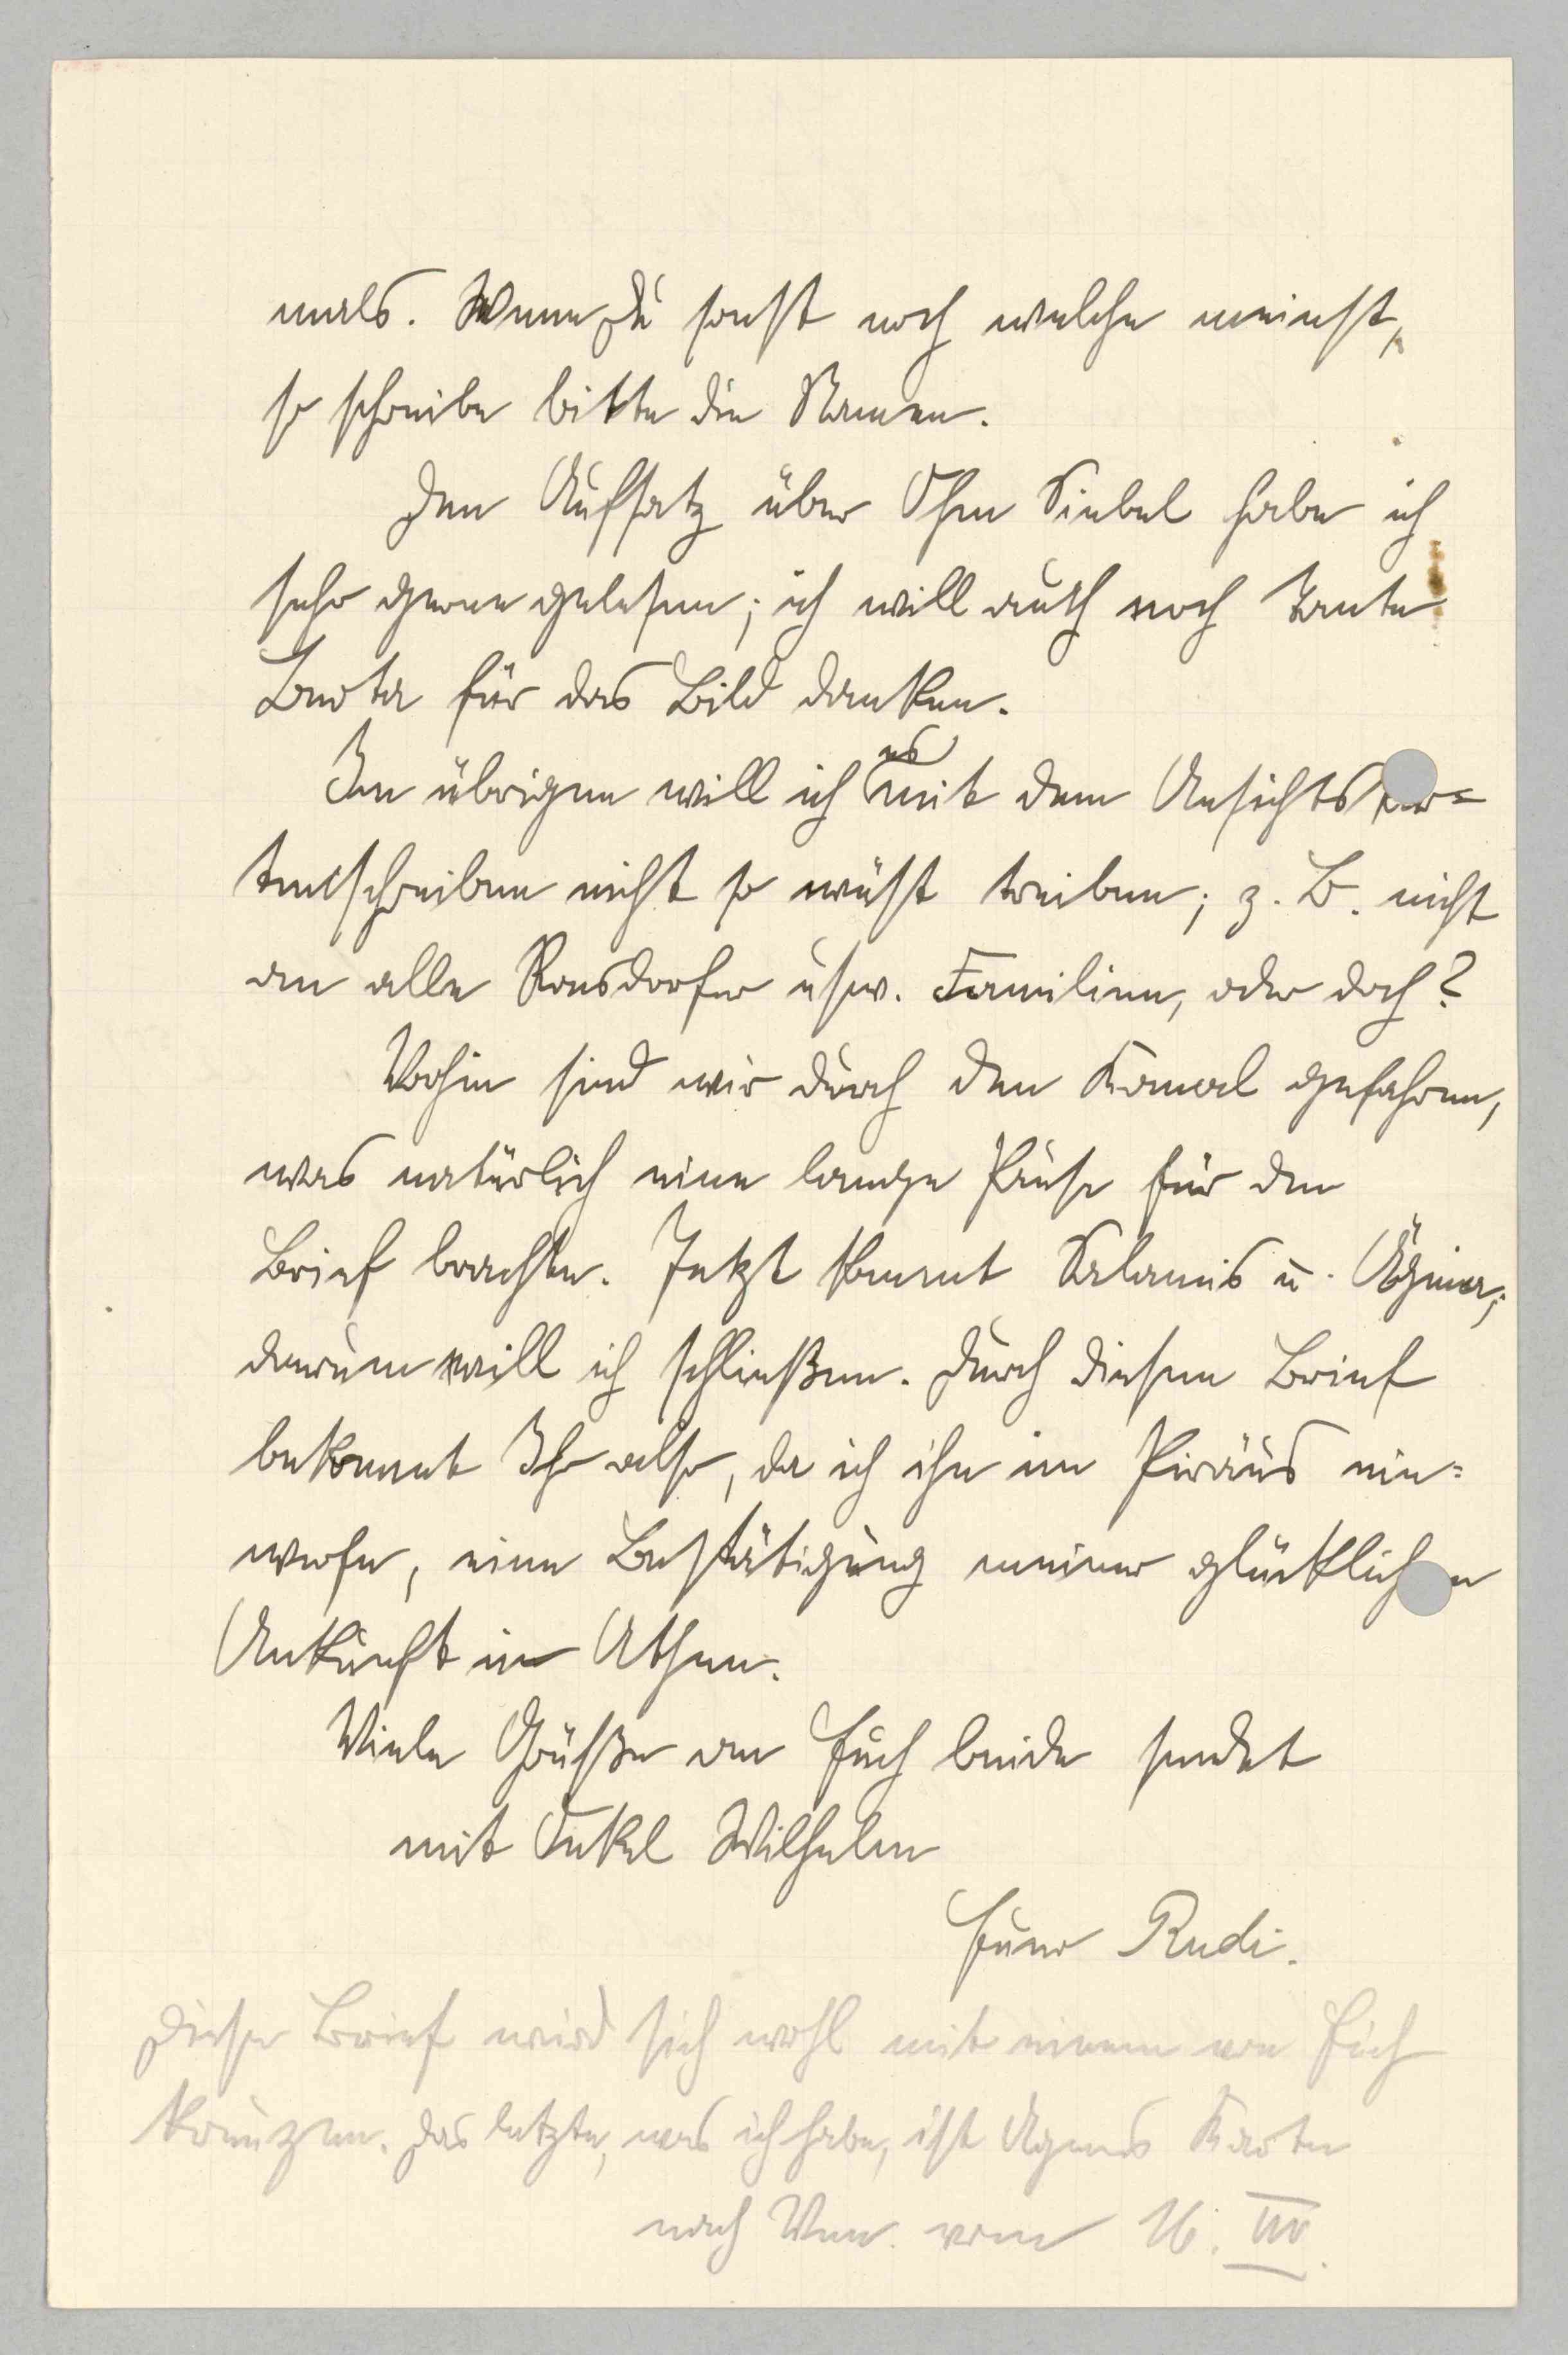 mals. Wenn Du sonst noch welche meinst,
so schreibe bitte die Namen.
Den Aufsatz über Ohm Siebel habe ich
sehr gerne gelesen; ich will auch noch Tante
Berta für das Bild danken.
Im übrigen will ich es mit dem Ansichtskar=
tenschreiben nicht so wüst treiben; z. B. nicht
an alle Ronsdorfer usw. Familien, oder doch?
Vorhin sind wir durch den Kanal gefahren,
was natürlich eine lange Pause für den
Brief brachte. Jetzt kommt Salamis u. Ägina;
darum will ich schließen. Durch diesen Brief
bekommt Ihr also, da ich ihn im Piräus ein=
werfe, eine Bestätigung meiner glücklichen
Ankunft in Athen.
Viele Grüße an Euch beide sendet
mit Onkel Wilhelm
Euer Rudi.
Dieser Brief wird sich wohl mit einem von Euch
kreuzen. Das letzte, was ich habe, ist Agnes Karte
nach Ven. vom 16. III.